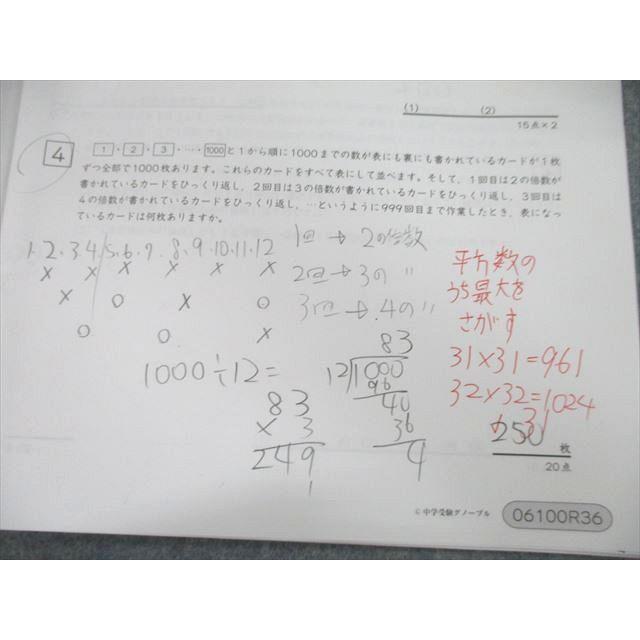 (1) (2)
15点×2
4
1・2・3・…・1000と1から順に1000までの数が表にも裏にも書かれているカードが1枚
ずつ全部で1000枚あります。これらのカードをすべて表にして並べます。そして、1回目は2の倍数が
書かれているカードをひっくり返し、2回目は3の倍数が書かれているカードをひっくり返し、3回目は
4の倍数が書かれているカードをひっくり返し、…というように999回目まで作業したとき、表になっ
ているカードは何枚ありますか。
1回→2の倍数
1・2・3・4・5・6・7・8・9・10・11・12
× × × × × ×
2回→3の〃
× ○ × ○
3回→4の〃
○ ○ ×
平方数の
うち最大を
さがす
31×31=961
32×32=1024
31
1000÷12=
83
12 1000
96
40
36
4
83
× 3
249
1
250枚
20点
©中学受験グノーブル
06100R36